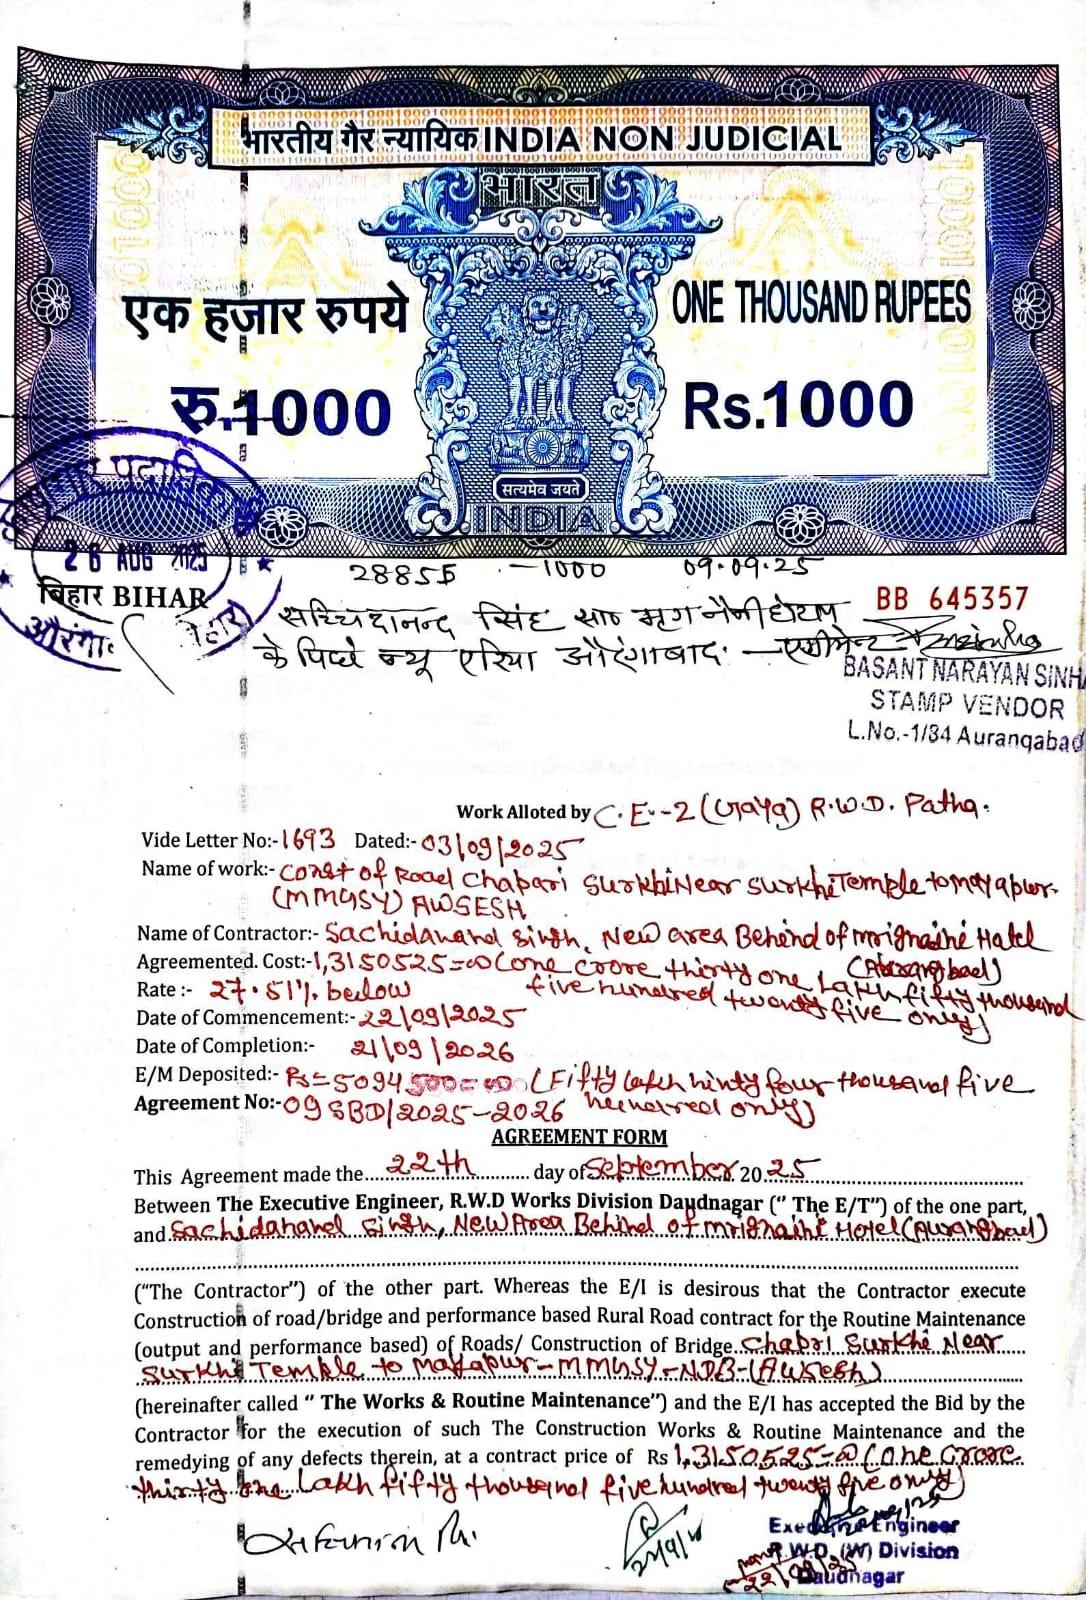 भारतीय गैर न्यायिक INDIA NON JUDICIAL
भारत
एक हजार रुपये ONE THOUSAND RUPEES
रु.1000 Rs.1000
सत्यमेव जयते
INDIA
26 AUG 2025
बिहार BIHAR
28855 -1000 09.09.25
BB 645357
सच्चिदानन्द सिंह सा० मृगनैनी होटल
के पिछे न्यू एरिया औरंगाबाद
BASANT NARAYAN SINHA
STAMP VENDOR
L.No.-1/84 Aurangabad
Work Alloted by C.E.-2 (Gaya) R.W.D. Patna.
Vide Letter No:- 1693 Dated:- 03/09/2025
Name of work:- Const of Road Chapari Surkhi Near Surkhi Temple to Mayapur-
(MMGSY) AWSESH
Name of Contractor:- Sachidanand Singh, New area Behind of Mrignaini Hotel
(Aurangbad)
Agreemented. Cost:- 1,3150525=00 (one crore thirty one Lakh fifty thousand
five hundred twenty five only)
Rate :- 27.51% below
Date of Commencement:- 22/09/2025
Date of Completion:- 21/09/2026
E/M Deposited:- Rs=5094500=00 (Fifty lakh ninty four thousand five
hundred only)
Agreement No:- 09 SBD/2025-2026
AGREEMENT FORM
This Agreement made the 22th day of September 2025
Between The Executive Engineer, R.W.D Works Division Daudnagar (" The E/T") of the one part,
and Sachidanand Singh, New Area Behind of Mrignaini Hotel (Aurangbad)
("The Contractor") of the other part. Whereas the E/I is desirous that the Contractor execute
Construction of road/bridge and performance based Rural Road contract for the Routine Maintenance
(output and performance based) of Roads/ Construction of Bridge Chapri Surkhi Near
Surkhi Temple to Mayapur-MMGSY-NDB-(AWSESH)
(hereinafter called " The Works & Routine Maintenance") and the E/I has accepted the Bid by the
Contractor for the execution of such The Construction Works & Routine Maintenance and the
remedying of any defects therein, at a contract price of Rs 1,3150525=00 (One Crore
thirty one Lakh fifty thousand five hundred twenty five only)
Executive Engineer
R.W.D. (W) Division
Daudnagar
22/09/25